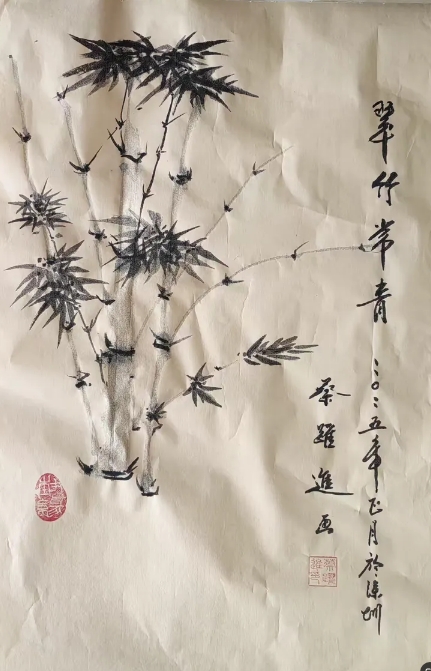 翠竹常青
二〇二五年正月於深圳
蔡躍進画